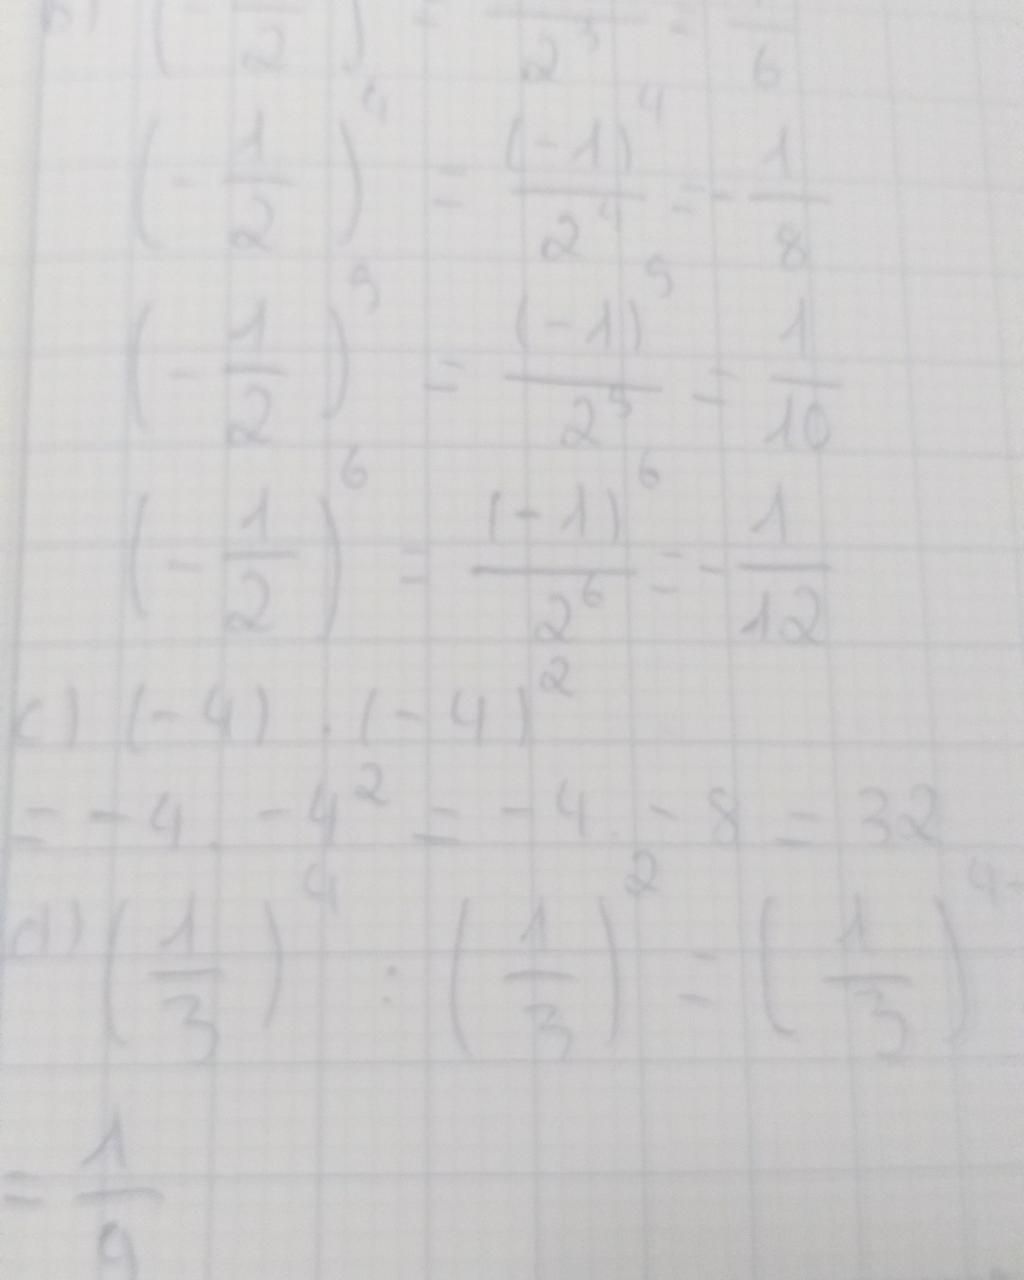 b) (-1/2) = /2³ = 1/6
(-1/2)⁴ = (-1)⁴/2⁴ = -1/8
(-1/2)⁵ = (-1)⁵/2⁵ = 1/10
(-1/2)⁶ = (-1)⁶/2⁶ = -1/12
c) (-4) · (-4)²
= -4 · -4² = -4 · -8 = 32
d) (1/3)⁴ : (1/3)² = (1/3)⁴⁻
= 1/9